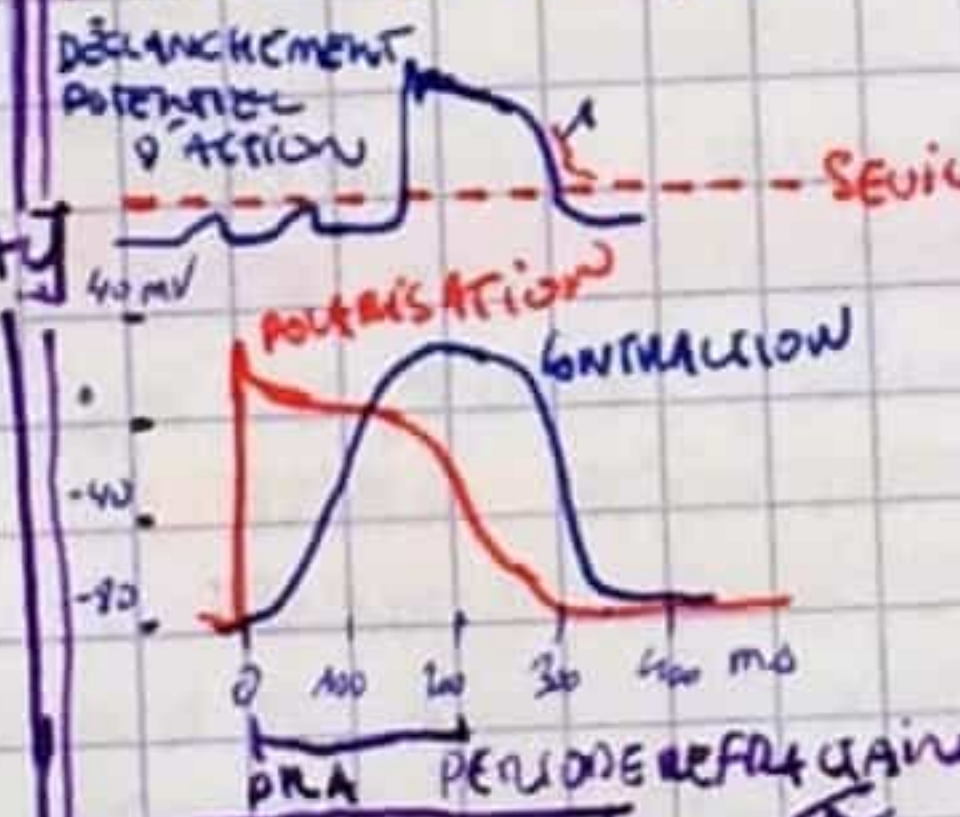 DÉCLANCHEMENT
POTENTIEL
D'ACTION
SEUIL
40 mV
POLARISATION
CONTRACTION
0
-40
-80
0 100 200 300 400 ms
PRA PERIODE REFRACTAIR